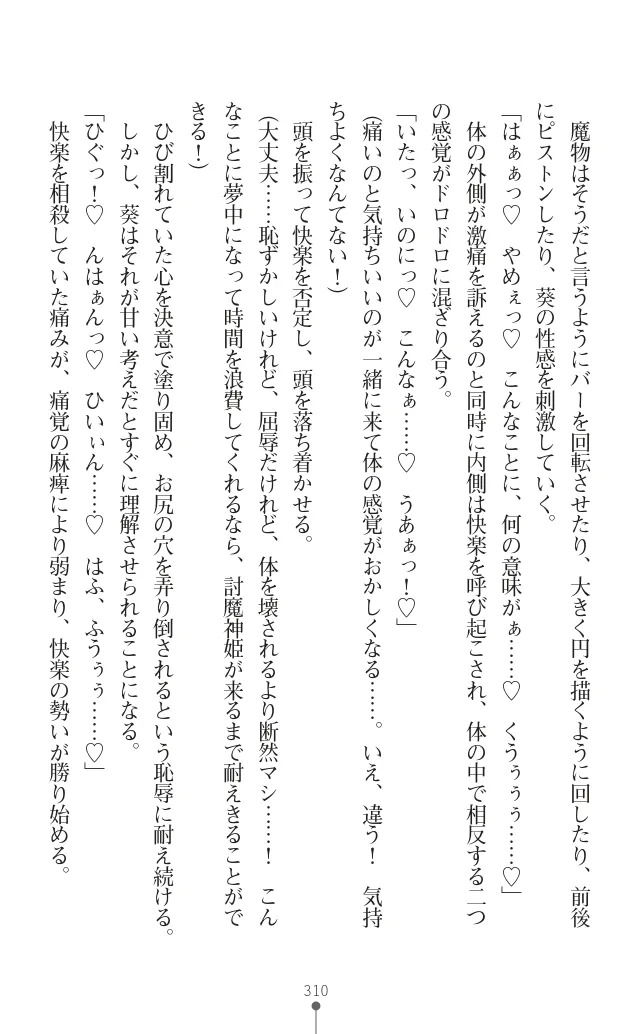 魔物はそうだと言うようにバーを回転させたり、大きく円を描くように回したり、前後
にピストンしたり、葵の性感を刺激していく。
「はぁぁっ♡　やめぇっ♡　こんなことに、何の意味がぁ……♡　くうぅぅぅ……♡」
体の外側が激痛を訴えるのと同時に内側は快楽を呼び起こされ、体の中で相反する二つ
の感覚がドロドロに混ざり合う。
「いたっ、いのにっ♡　こんなぁ……♡　うあぁっ！♡」
（痛いのと気持ちいいのが一緒に来て体の感覚がおかしくなる……。いえ、違う！　気持
ちよくなんてない！）
頭を振って快楽を否定し、頭を落ち着かせる。
（大丈夫……恥ずかしいけれど、屈辱だけれど、体を壊されるより断然マシ……！　こん
なことに夢中になって時間を浪費してくれるなら、討魔神姫が来るまで耐えきることがで
きる！）
ひび割れていた心を決意で塗り固め、お尻の穴を弄り倒されるという恥辱に耐え続ける。
しかし、葵はそれが甘い考えだとすぐに理解させられることになる。
「ひぐっ！♡　んはぁんっ♡　ひいぃん……♡　はふ、ふうぅぅ……♡」
快楽を相殺していた痛みが、痛覚の麻痺により弱まり、快楽の勢いが勝り始める。
310